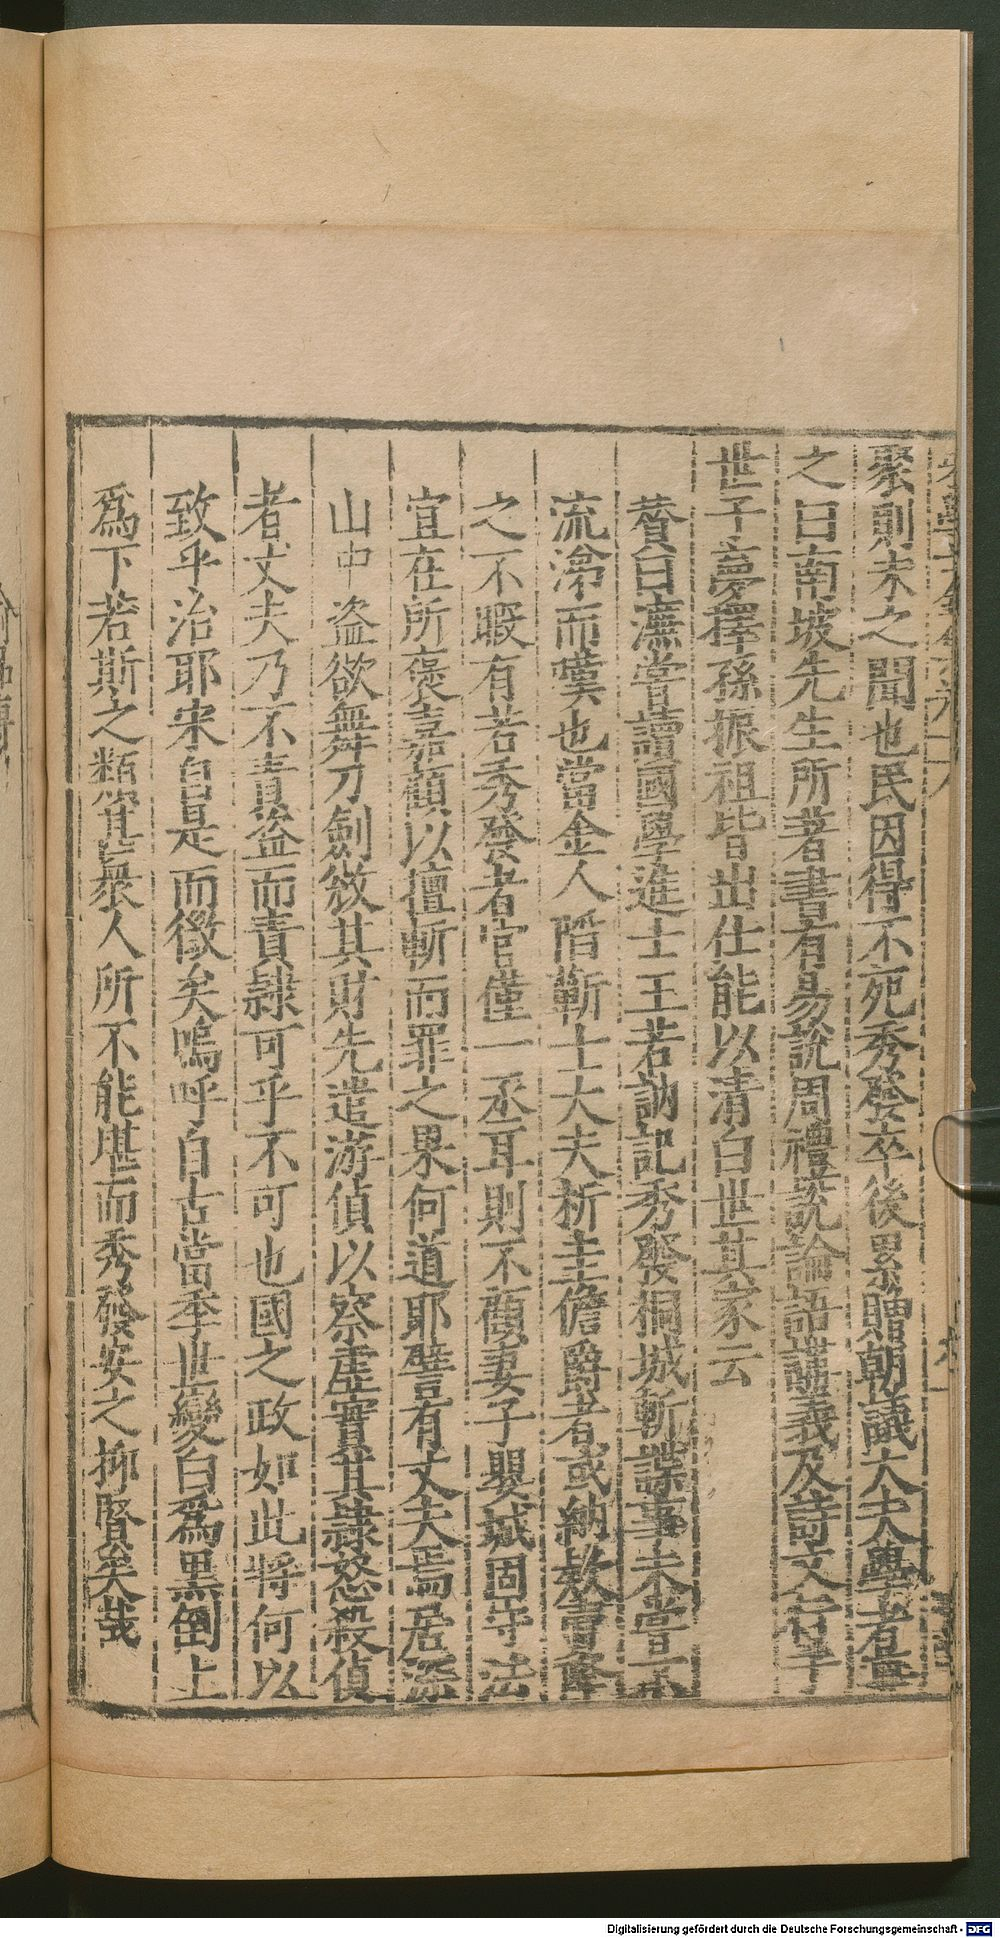 聚則未之聞也民因得不死秀發卒後累贈朝議大夫學者尊
之曰南坡先生所著書有易說周禮說論語講義及詩文若干
世子夢擇孫振祖皆出仕能以清白世其家云
贊曰濂嘗讀國學進士王若訥記秀發桐城斬諜事未嘗不
流涕而嘆也當金人陷蘄士大夫析圭儋爵者或納款賣降
之不暇有若秀發者官僅一丞耳則不顧妻子嬰城固守法
宜在所褒嘉顧以擅斬而罪之果何道耶譬有丈夫焉居深
山中盜欲舞刀劍斂其財先遣游偵以察虛實其隸怒殺偵
者丈夫乃不責盜而責隸可乎不可也國之政如此將何以
致乎治耶宋自是而微矣嗚呼自古當季世變白為黑倒上
為下若斯之類寔衆人所不能堪而秀發安之抑賢矣哉
Digitalisierung gefördert durch die Deutsche Forschungsgemeinschaft - DFG